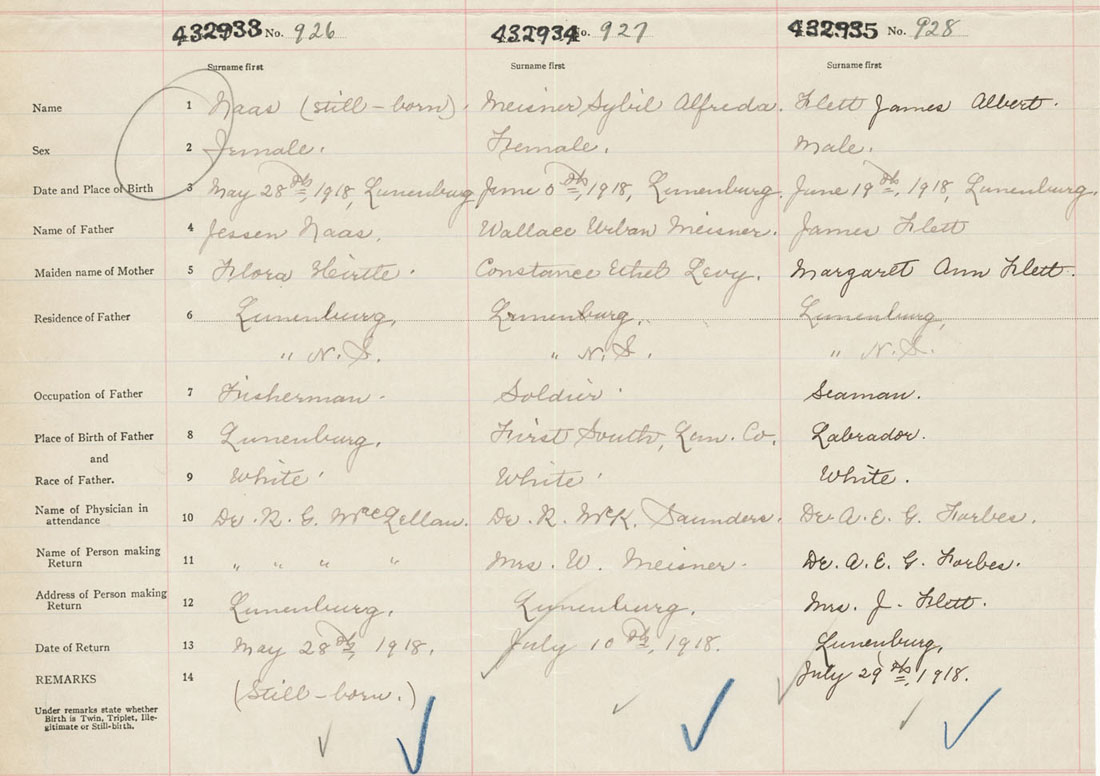 432933 No. 926 432934 No. 927 432935 No. 928
Surname first Surname first Surname first
Name 1 Naas (still-born). Meisner Sybil Alfreda. Flett James Albert.
Sex 2 Female. Female. Male.
Date and Place of Birth 3 May 28th, 1918, Lunenburg June 6th, 1918, Lunenburg. June 19th, 1918, Lunenburg.
Name of Father 4 Jessen Naas. Wallace Urban Meisner. James Flett
Maiden name of Mother 5 Flora Hirtle. Constance Ethel Levy. Margaret Ann Flett.
Residence of Father 6 Lunenburg, Lunenburg, Lunenburg,
" N.S. " N.S. " N.S.
Occupation of Father 7 Fisherman. Soldier. Seaman.
Place of Birth of Father 8 Lunenburg. First South, Lun. Co. Labrador.
and
Race of Father. 9 White. White. White.
Name of Physician in
attendance 10 Dr. R. G. McLellan. Dr. R. McK. Saunders. Dr. A. E. G. Forbes.
Name of Person making
Return 11 " " " " Mrs. W. Meisner. Dr. A. E. G. Forbes.
Address of Person making
Return 12 Lunenburg. Lunenburg. Mrs. J. Flett.
Date of Return 13 May 28th, 1918. July 10th, 1918. Lunenburg,
REMARKS 14 (Still-born.) July 29th, 1918.
Under remarks state whether
Birth is Twin, Triplet, Ille-
gitimate or Still-birth.